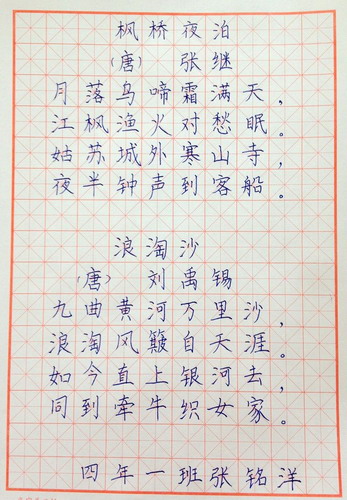 枫桥夜泊
（唐） 张继
月落乌啼霜满天，
江枫渔火对愁眠。
姑苏城外寒山寺，
夜半钟声到客船。
浪淘沙
（唐） 刘禹锡
九曲黄河万里沙，
浪淘风簸自天涯。
如今直上银河去，
同到牵牛织女家。
四年一班张铭洋